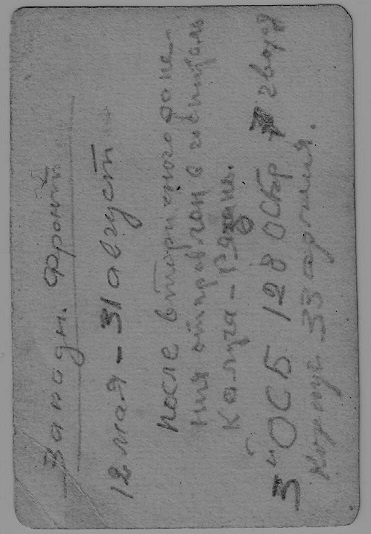 Западн. Фронт
12 мая – 31 август
после вторичного ране-
ния отправлен в госпиталь
Калуга – Рязань.
3й ОСБ 128 ОСБр 7 гвард
Корпус 33 армия.